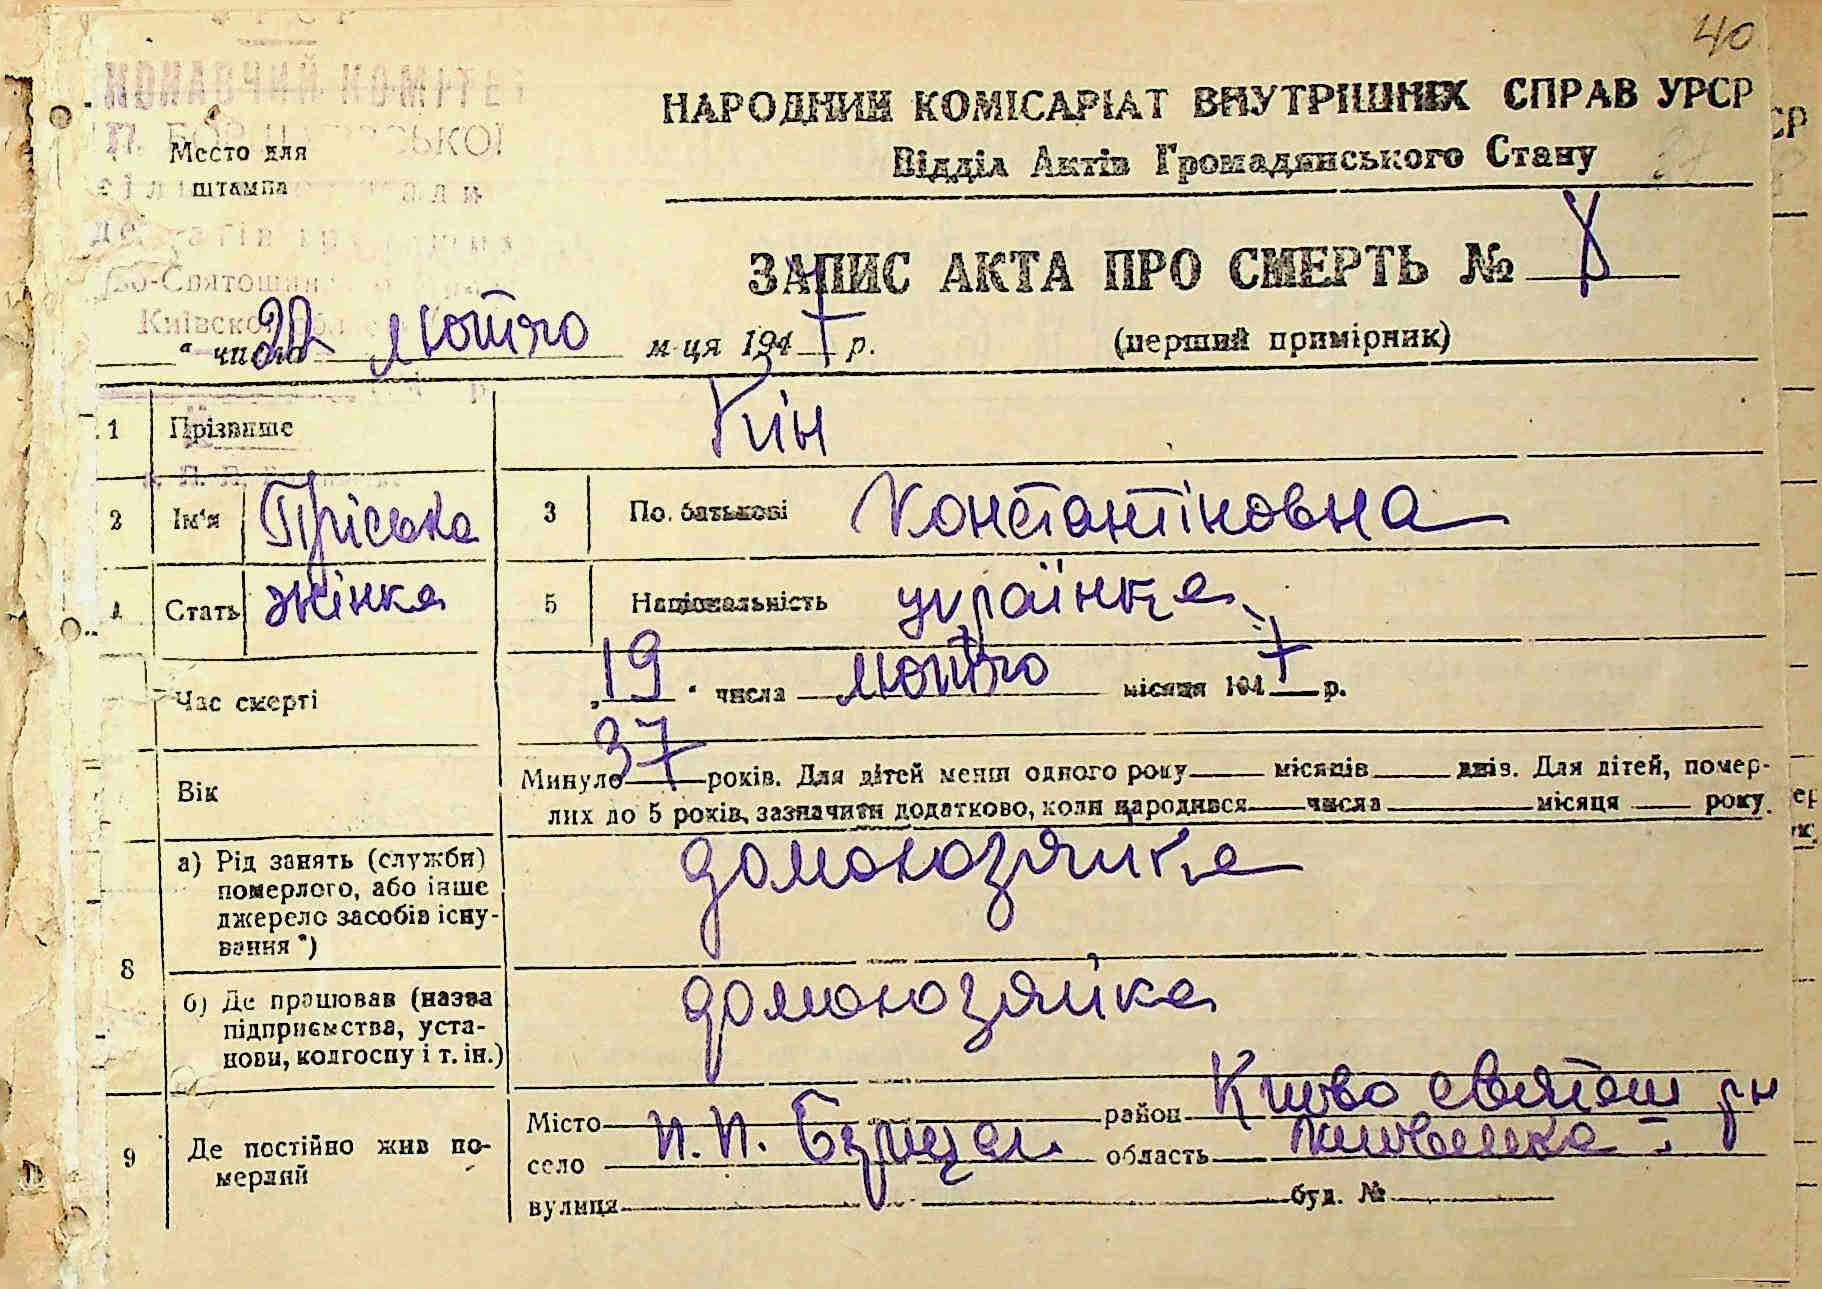 40
НАРОДНИЙ КОМІСАРІАТ ВНУТРІШНІХ СПРАВ УРСР
Відділ Актів Громадянського Стану
Место для
штампа
ЗАПИС АКТА ПРО СМЕРТЬ № 8
" 22 числа лютого м-ця 1947 р. (перший примірник)
1 Прізвище Кін
2 Ім'я Пріська 3 По батькові Константіновна
4 Стать жінка 5 Національність українка
Час смерті „19" числа лютого місяця 1947 р.
Вік Минуло 37 років. Для дітей менш одного року місяців днів. Для дітей, помер-
лих до 5 років, зазначити додатково, коли народився числа місяця року.
8 а) Рід занять (служби) померлого, або інше джерело засобів існу-вання *) домохозяйка
б) Де працював (назва підприємства, уста-нови, колгоспу і т. ін.) домохозяйка
9 Де постійно жив по-мерлий Місто район Києво святош рн
село П.П. область Київська
вулиця буд. №